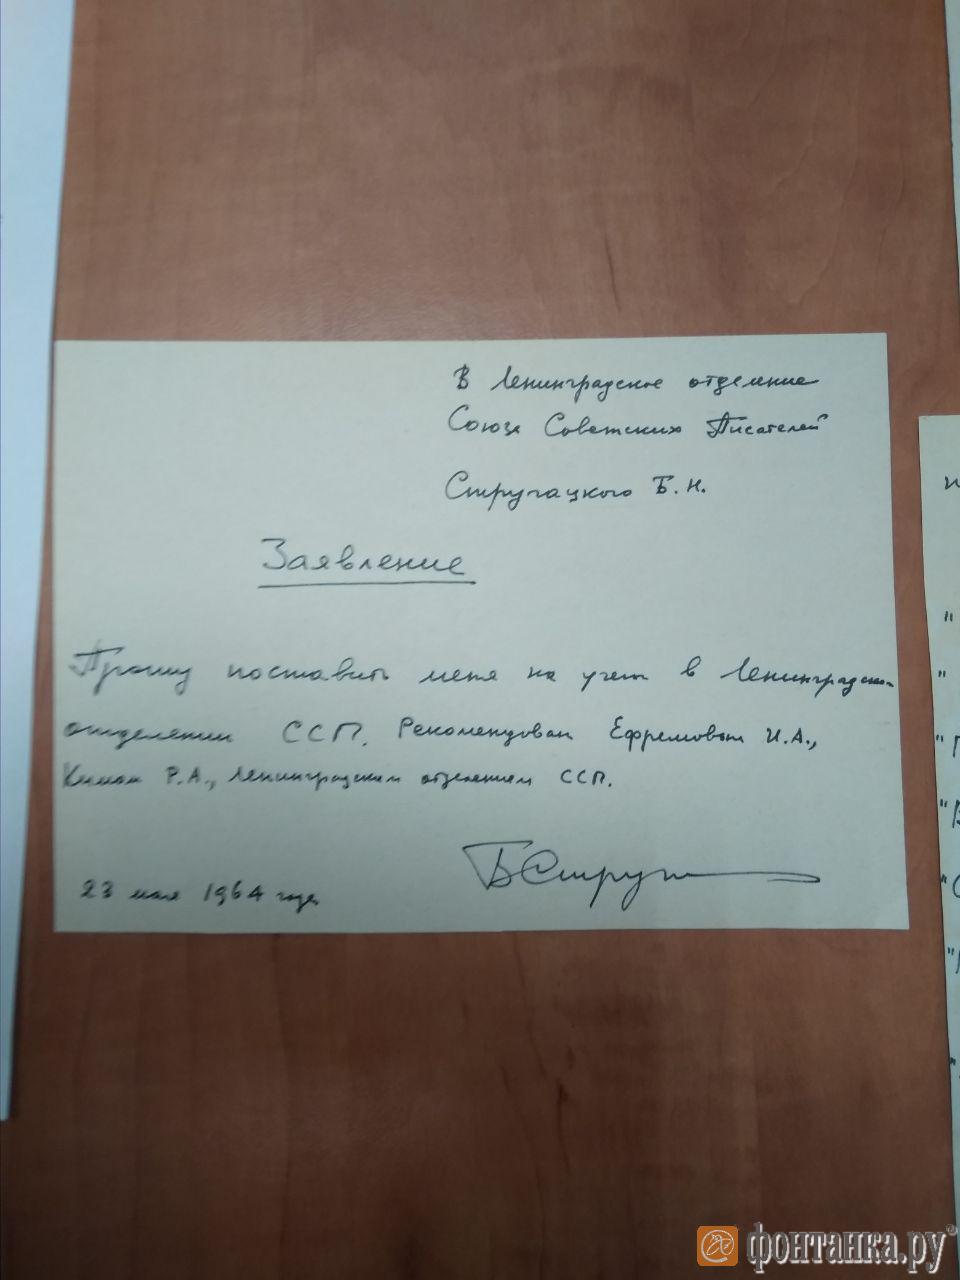 В Ленинградское отделение
Союза Советских Писателей
Стругацкого Б. Н.
Заявление
Прошу поставить меня на учет в Ленинградском
отделении ССП. Рекомендован Ефремовым И.А.,
Кимом Р.А., Ленинградским отделением ССП.
23 мая 1964 года
БСтруг
фонтанка.ру